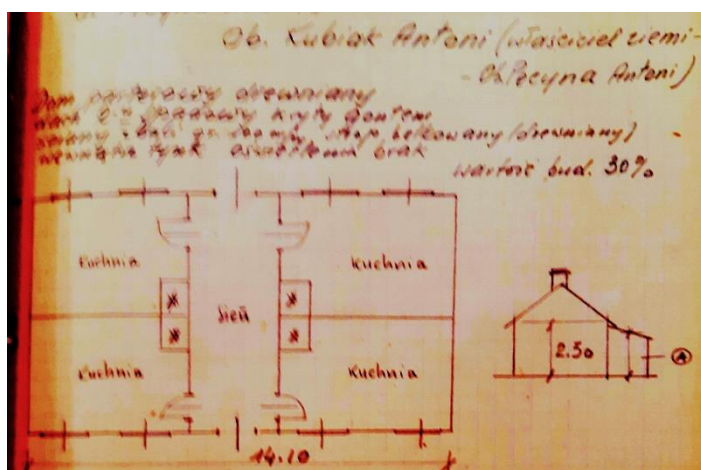 Ob. Kubiak Antoni (właściciel ziemi-
Antoni)
Dom parterowy drewniany
dach 2-u spadowy kryty gontem
ściany z bali strop belkowany (drewniany)
wewnątrz tynk oświetlenia brak
wartość bud. 30%
Kuchnia
Kuchnia
Sień
Kuchnia
Kuchnia
2.50
A
14.10